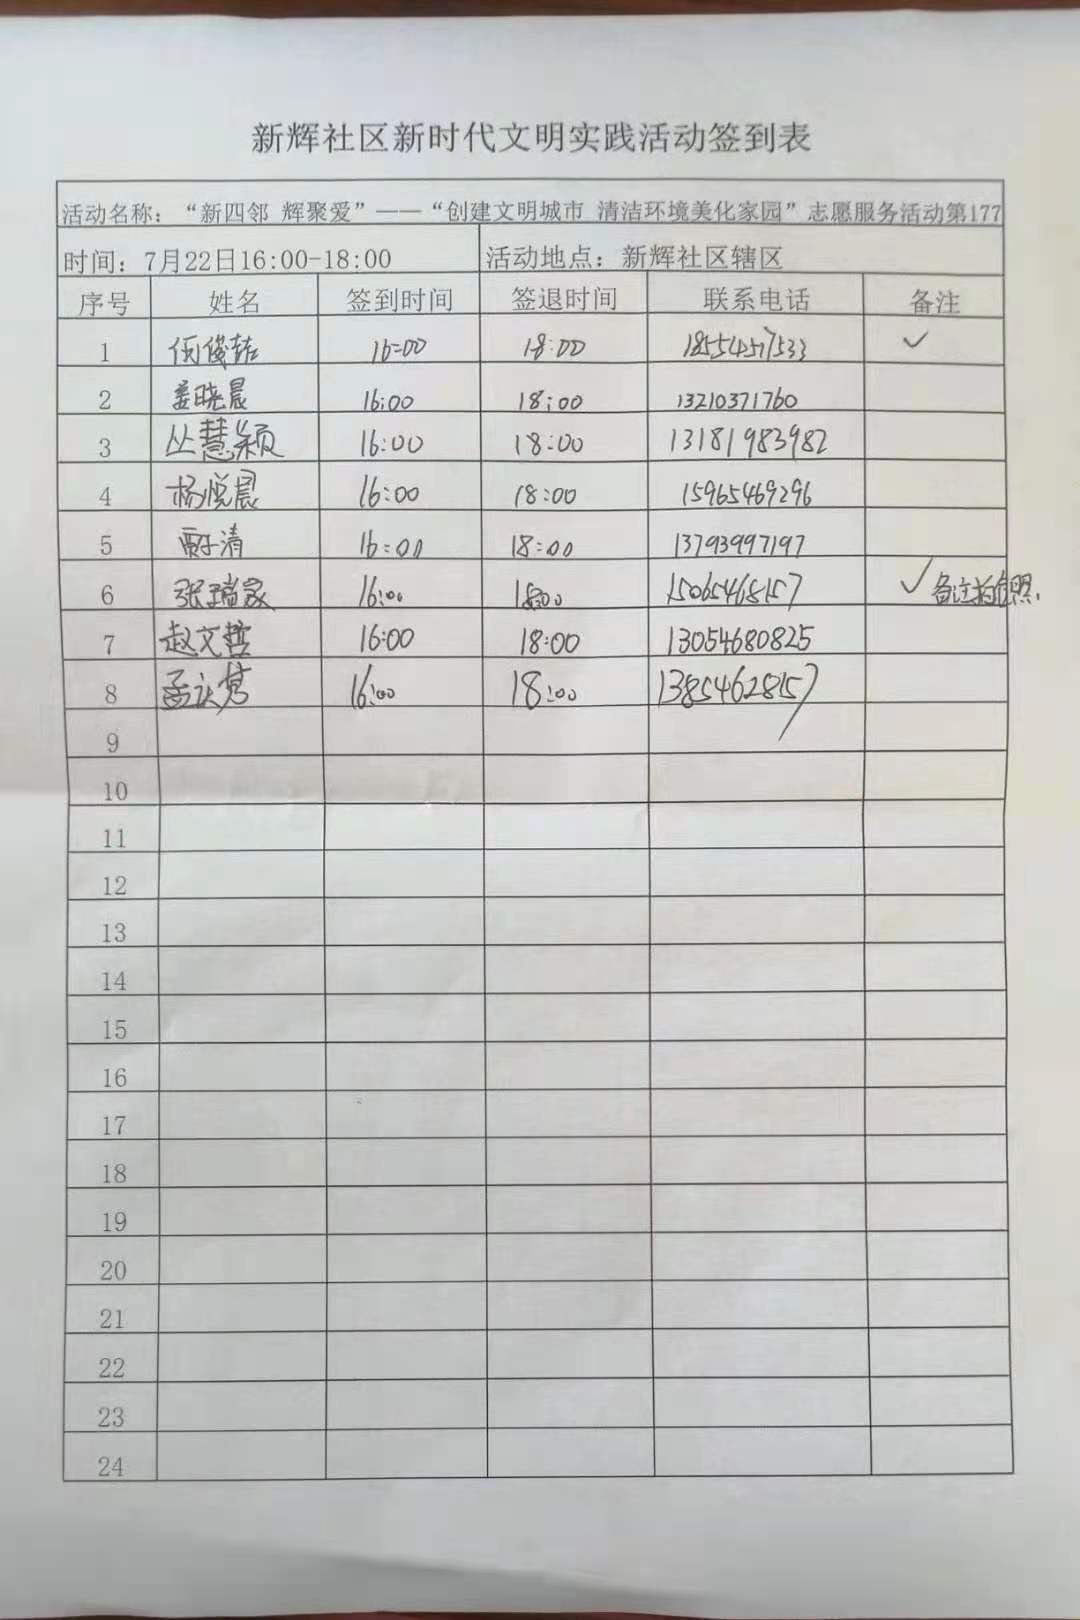 新辉社区新时代文明实践活动签到表
活动名称：“新四邻 辉聚爱”——“创建文明城市 清洁环境美化家园”志愿服务活动第177
时间：7月22日16:00-18:00 活动地点：新辉社区辖区
序号 姓名 签到时间 签退时间 联系电话 备注
1 16:00 18:00 18554517533 ✓
2 姜晓晨 16:00 18:00 13210371760
3 丛慧颖 16:00 18:00 13181983982
4 杨悦晨 16:00 18:00 15965469296
5 清 16:00 18:00 13793997197
6 张瑞家 16:00 18:00 15065468157 ✓ 备注
7 赵文哲 16:00 18:00 13054680825
8 孟 16:00 18:00 13854628157
9
10
11
12
13
14
15
16
17
18
19
20
21
22
23
24